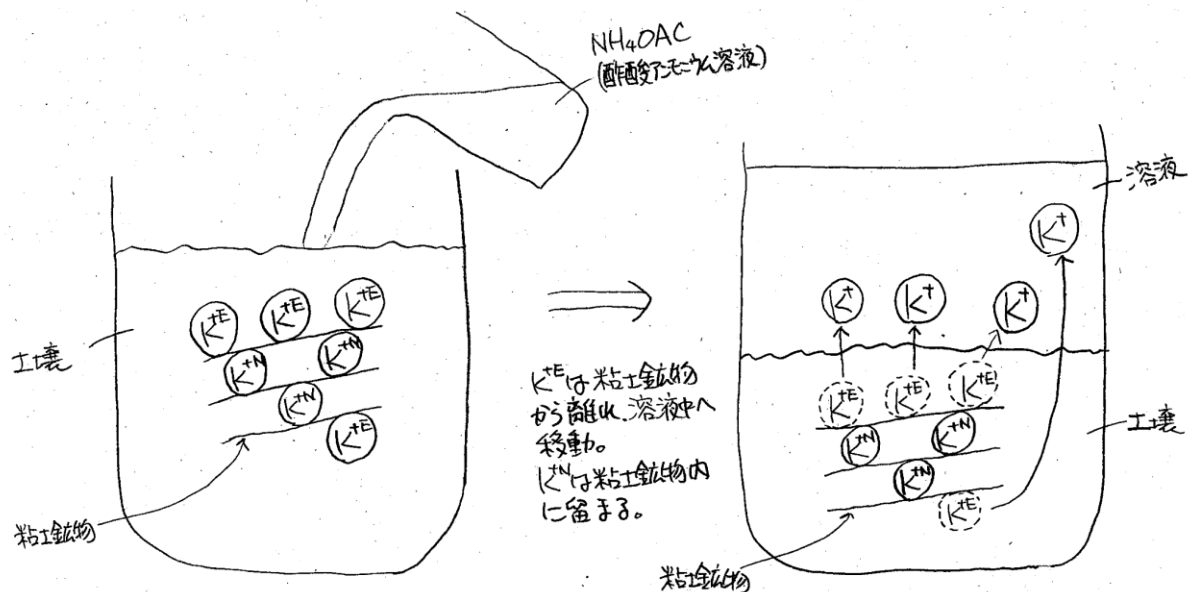 NH₄OAC
(酢酸アンモニウム溶液)
溶液
K⁺
K⁺ᴱ K⁺ᴱ K⁺ᴱ
K⁺ K⁺ K⁺
土壌
K⁺ᴺ K⁺ᴺ
K⁺ᴺ
K⁺ᴱ
粘土鉱物
K⁺ᴱは粘土鉱物
から離れ、溶液中へ
移動。
K⁺ᴺは粘土鉱物内
に留まる。
K⁺ᴱ K⁺ᴱ K⁺ᴱ
土壌
K⁺ᴺ K⁺ᴺ
K⁺ᴺ
K⁺ᴱ
粘土鉱物